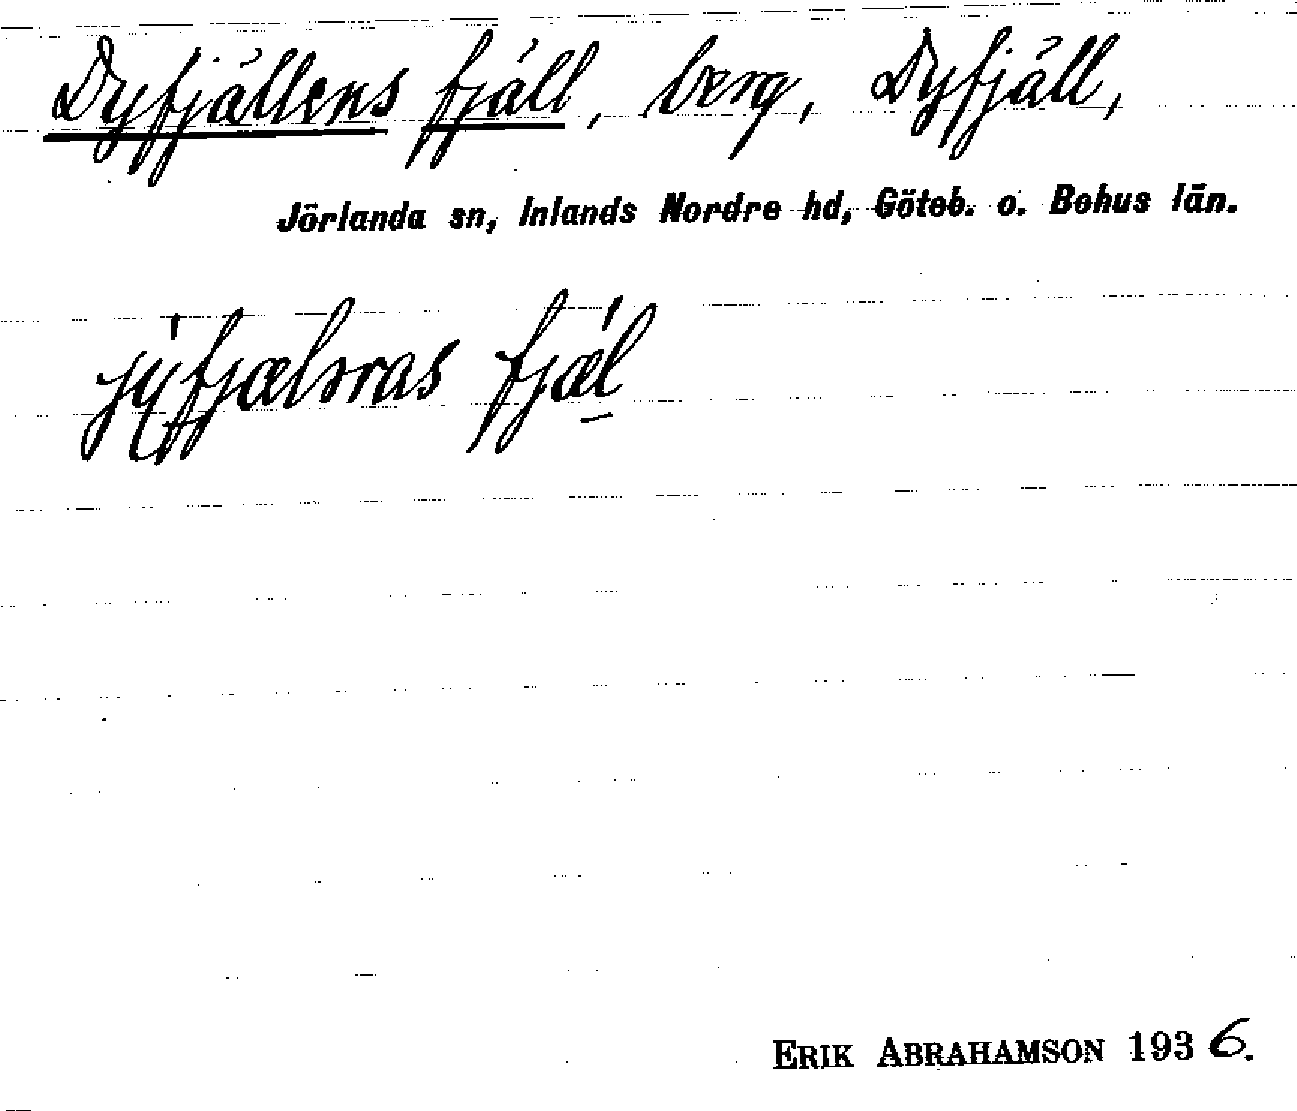 Dyfjällens fjäll, berg, Dyfjäll,
Jörlanda sn, Inlands Nordre hd, Göteb. o. Bohus län.
fjæl
ERIK ABRAHAMSON 1936.